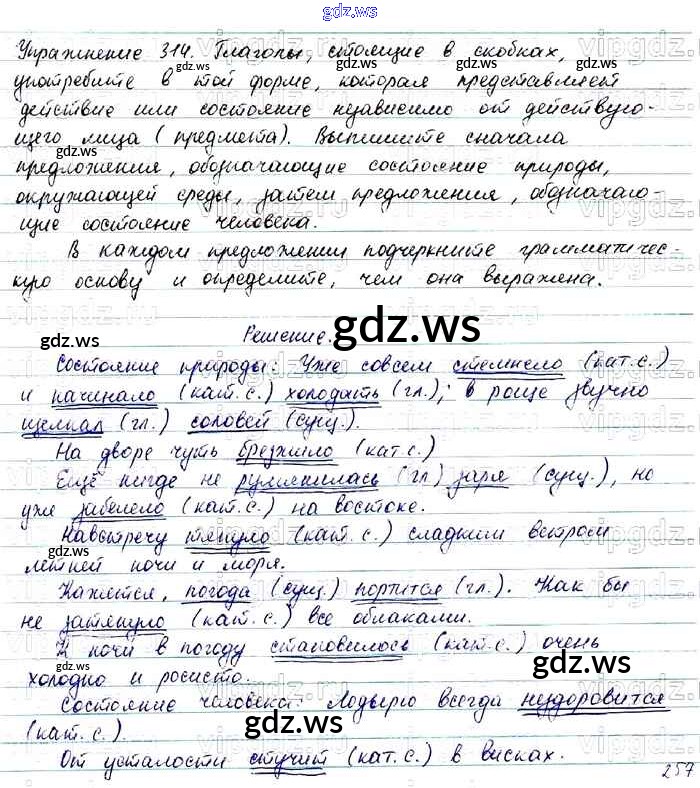 gdz.ws
Упражнение 314. Глаголы, стоящие в скобках,
употребите в той форме, которая представляет
действие или состояние независимо от действую-
щего лица (предмета). Выпишите сначала
предложения, обозначающие состояние природы,
окружающей среды, затем предложения, обознача-
ющие состояние человека.
В каждом предложении подчеркните грамматичес-
кую основу и определите, чем она выражена.
Решение.
Состояние природы: Уже совсем стемнело (кат.с.)
и начинало (кат.с.) холодать (гл.); в роще звучно
щелкал (гл.) соловей (сущ.).
На дворе чуть брезжило (кат.с.)
Ещё нигде не румянилась (гл) заря (сущ.), но
уже забелело (кат.с.) на востоке.
Навстречу тянуло (кат.с.) сладким ветром
летней ночи и моря.
Кажется, погода (сущ.) портится (гл.). Как бы
не затянуло (кат.с.) все облаками.
К ночи в погоду становилось (кат.с.) очень
холодно и росисто.
Состояние человека: Лодырю всегда нездоровится
(кат.с.).
От усталости стучит (кат.с.) в висках.
257